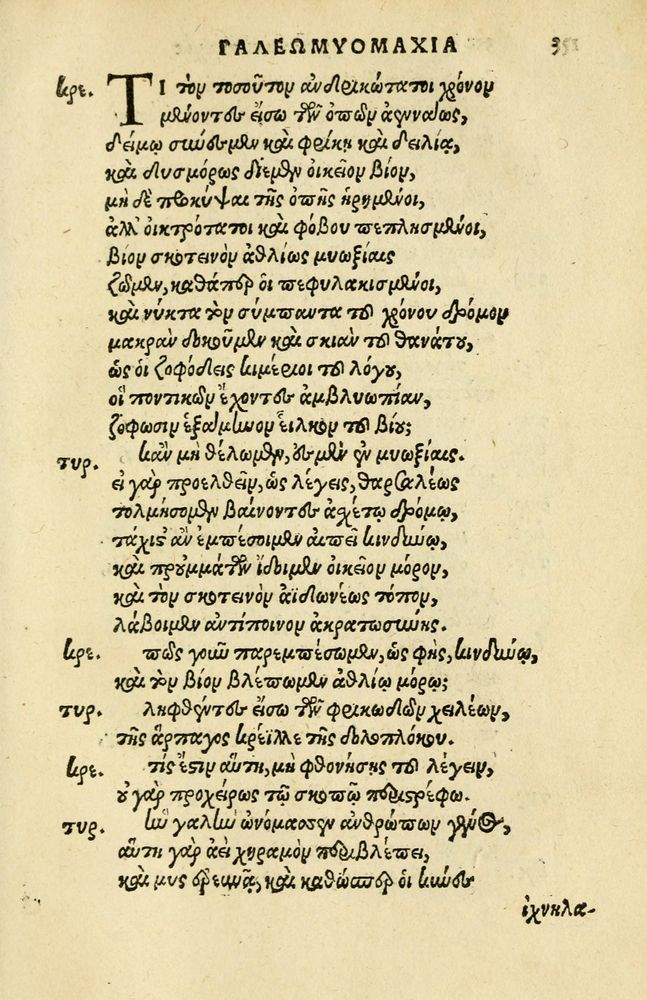 ΓΑΛΕΩΜΥΟΜΑΧΙΑ 351
κρε. ΤΙ τὸν τοσοῦτον ἀνδρικώτατοι χρόνον
μένοντες εἴσω τῶν ὀπῶν ἀεννάως,
δείμῳ σύνεσμεν καὶ φρίκῃ καὶ δειλίᾳ,
καὶ δυσμόρως δίεμεν οἰκεῖον βίον,
μὴ δὲ προκύψαι τῆς ὀπῆς ᾑρημένοι,
ἀλλ' οἰκτρότατοι καὶ φόβου πεπλησμένοι,
βίον σκοτεινὸν ἀθλίως μυωξίαις
ζῶμεν, καθάπερ οἱ πεφυλακισμένοι,
καὶ νύκτα τὸν σύμπαντα τοῦ χρόνου δρόμον
μακρὰν δοκοῦμεν καὶ σκιὰν τοῦ θανάτου,
ὡς οἱ ζοφώδεις κιμέριοι τοῦ λόγου,
οἳ ποντικῶν ἔχοντες ἀμβλυωπίαν,
ζόφωσιν ἑξάμηνον εἷλκον τοῦ βίου;
τυρ. κἂν μὴ θέλωμεν, ἐσμὲν ἐν μυωξίαις.
εἰ γὰρ προελθεῖν, ὡς λέγεις, θαρσαλέως
τολμήσομεν βαίνοντες ἀσχέτῳ δρόμῳ,
τάχιστ' ἂν ἐμπέσοιμεν αἰπεῖ κινδύνῳ,
καὶ πρὸ ὀμμάτων ἴδοιμεν οἰκεῖον μόρον,
καὶ τὸν σκοτεινὸν ἀϊδωνέως τόπον,
λάβοιμεν ἀντίποινον ἀκρατωσύνης.
κρε. πῶς γοῦν παρεμπέσωμεν, ὡς φῂς, κινδύνῳ,
καὶ τὸν βίον βλέπωμεν ἀθλίῳ μόρῳ;
τυρ. ληφθέντες εἴσω τῶν φρικωδῶν χειλέων,
τῆς ἅρπαγος κρέϊλλε τῆς δολοπλόκου.
κρε. τίς ἐστιν αὕτη, μὴ φθονήσῃς τοῦ λέγειν,
οὐ γὰρ προχείρως τῷ σκοπῷ περιστρέφω.
τυρ. ἣν γαλῆν ὠνόμασεν ἀνθρώπων γένος,
αὕτη γὰρ ἀεὶ χηραμὸν περιβλέπει,
καὶ μῦς ἐρευνᾷ, καὶ καθώσπερ οἱ κύνες
ἰχνηλα-